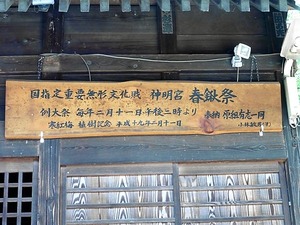 国指定重要無形文化財 神明宮 春鍬祭
例大祭 毎年二月十一日、午後二時より
寒紅梅 植樹記念 平成十九年二月十一日
奉納 原組有志一同